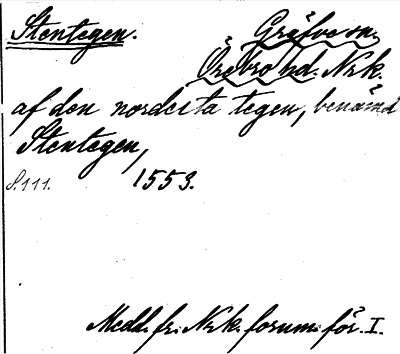 Stentegen. Gräfve sn.
Örebro hd. Nrk.
af den nordcista tegen, benämd
Stentegen,
S. 111. 1553.
Medd. fr. Nrk. fornm. för. I.